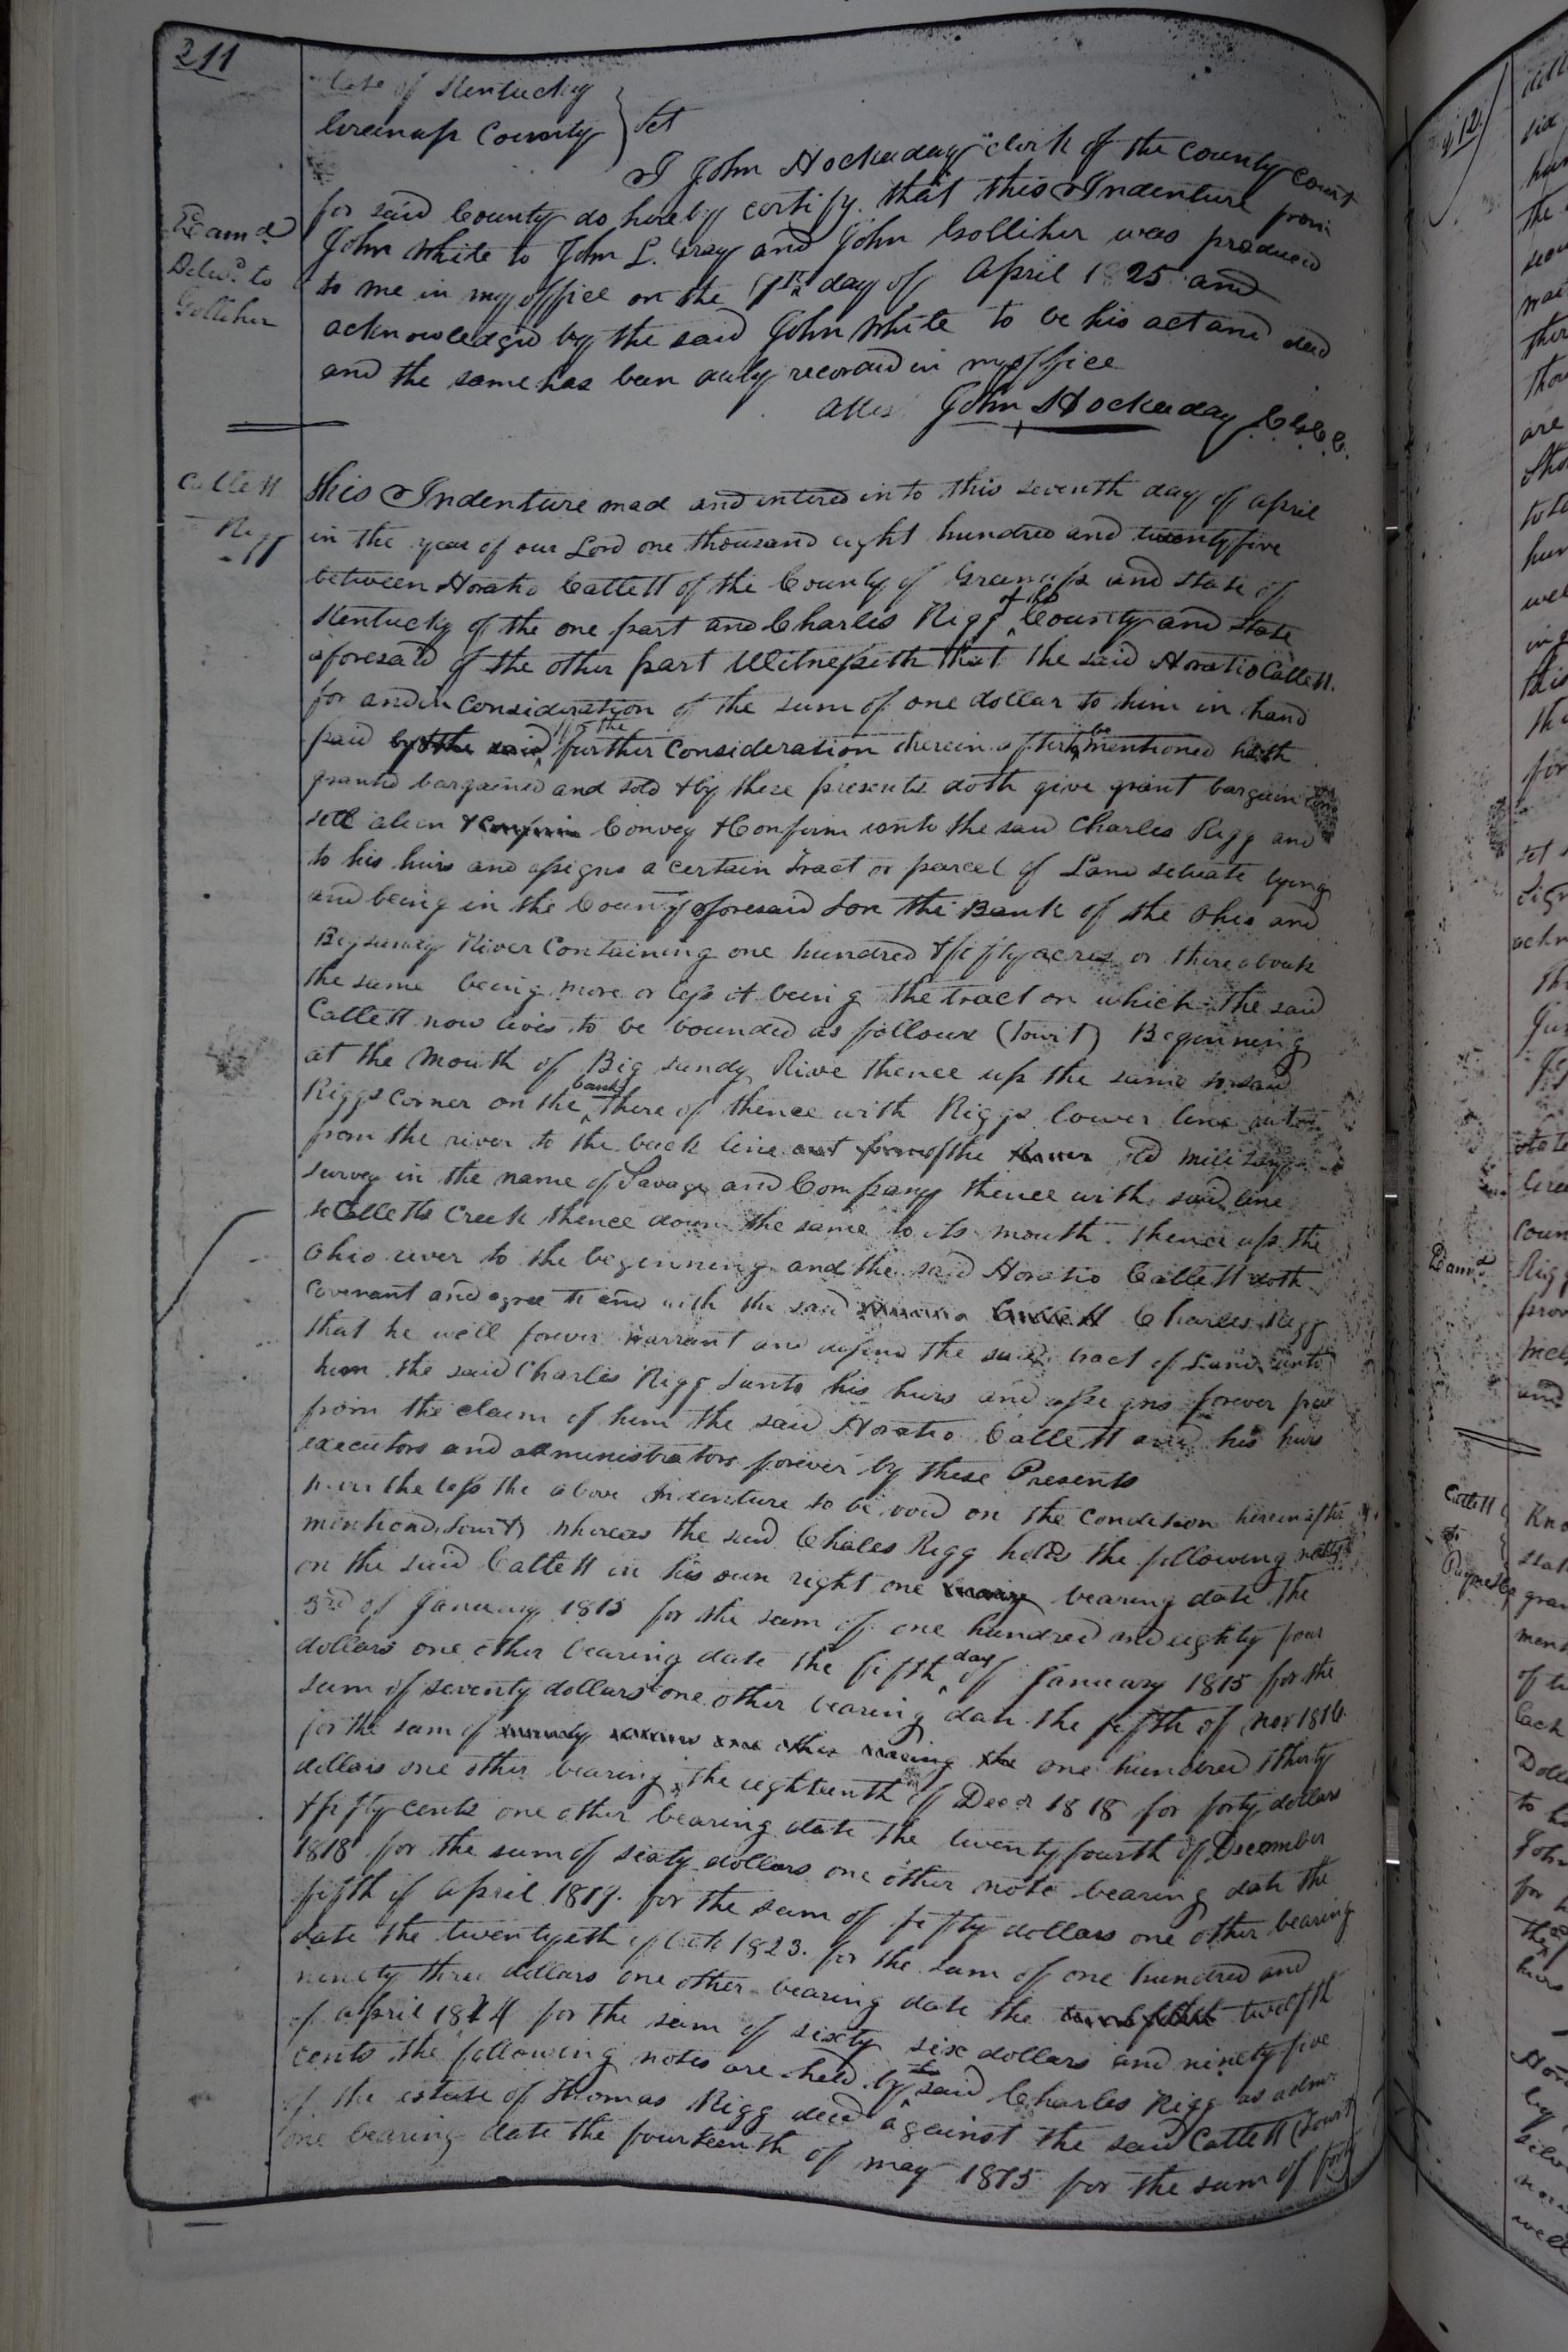 211
State of Kentucky
Greenup County } Sct
I John Hockaday clerk of the county court
for said County do hereby certify that this Indenture from
John White to John L. Gray and John Golliher was produced
to me in my office on the day of April 1825 and
acknowledged by the said John White to be his act and deed
and the same has been duly recorded in my office
Attest John Hockaday C.G.C.C.
Examd
Delivd to
Golliher
Catlett
to Rigg
This Indenture mad and entered into this seventh day of April
in the year of our Lord one thousand eight hundred and twenty five
between Horatio Catlett of the County of Greenup and State of
Kentucky of the one part and Charles Rigg of the County and State
aforesaid of the other part Witnesseth that the said Horatio Catlett
for and in Consideration of the sum of one dollar to him in hand
paid by the said & the further consideration herein after be mentioned hath
granted bargained and sold & by these presents doth give grant bargain and
sell alien & confirm Convey & Confirm unto the said Charles Rigg and
to his heirs and assigns a certain Tract or parcel of Land situate lying
and being in the County aforesaid & on the Bank of the Ohio and
Bigsandy River Containing one hundred & fifty acres or thereabouts
the same being more or less it being the tract on which the said
Catlett now lives to be bounded as follows (towit) Beginning
at the Mouth of Big sandy Rive thence up the same to said
Riggs corner on the bank there of thence with Riggs lower line out
from the river to the back line out from of the River old military
survey in the name of Savage and Company thence with said line
to Catletts Creek thence down the same to its mouth thence up the
Ohio river to the beginning and the said Horatio Catlett doth
Covenant and agree to and with the said Horatio Catlett Charles Rigg
that he will forever warrant and defend the said tract of Land unto
him the said Charles Rigg & unto his heirs and assigns forever free
from the claim of him the said Horatio Catlett and his heirs
executors and administrators forever by these Presents
never the less the above Indenture to be void on the Condition hereinafter
mentiond (towit) whereas the said Chales Rigg holds the following notes
on the said Catlett in his own right one bearing date the
3rd of January 1815 for the sum of one hundred and eighty four
dollars one other bearing date the fifth day of January 1815 for the
sum of seventy dollars one other bearing date the fifth of Nov 1816
for the sum of one other bearing the one hundred & thirty
dollars one other bearing the eighteenth of Decr 1818 for forty dollars
& fifty cents one other bearing date the twenty fourth of December
1818 for the sum of sixty dollars one other note bearing date the
fifth of April 1819. for the sum of fifty dollars one other bearing
date the twentyeth of Oct 1823. for the sum of one hundred and
ninety three dollars one other bearing date the twelfth
of april 1824 for the sum of sixty six dollars and ninety five
cents the following notes are held by the said Charles Rigg as admr
of the estate of Thomas Rigg decd against the said Catlett (towit)
one bearing date the fourteenth of may 1815 for the sum of forty